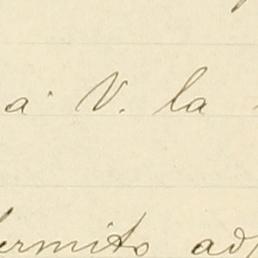 a V. la
ermito ad